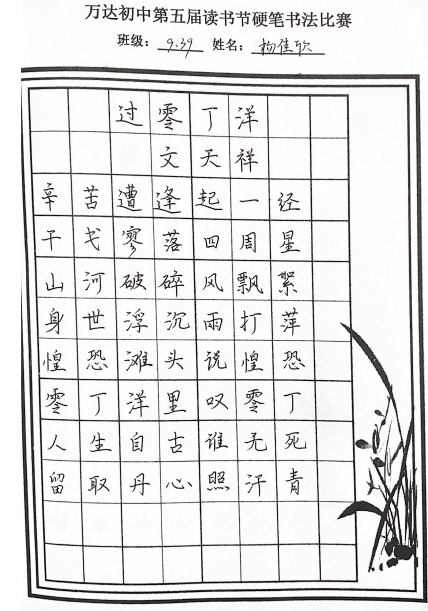 万达初中第五届读书节硬笔书法比赛
班级：9.39 姓名：杨佳欣
过零丁洋
文天祥
辛苦遭逢起一经
干戈寥落四周星
山河破碎风飘絮
身世浮沉雨打萍
惶恐滩头说惶恐
零丁洋里叹零丁
人生自古谁无死
留取丹心照汗青